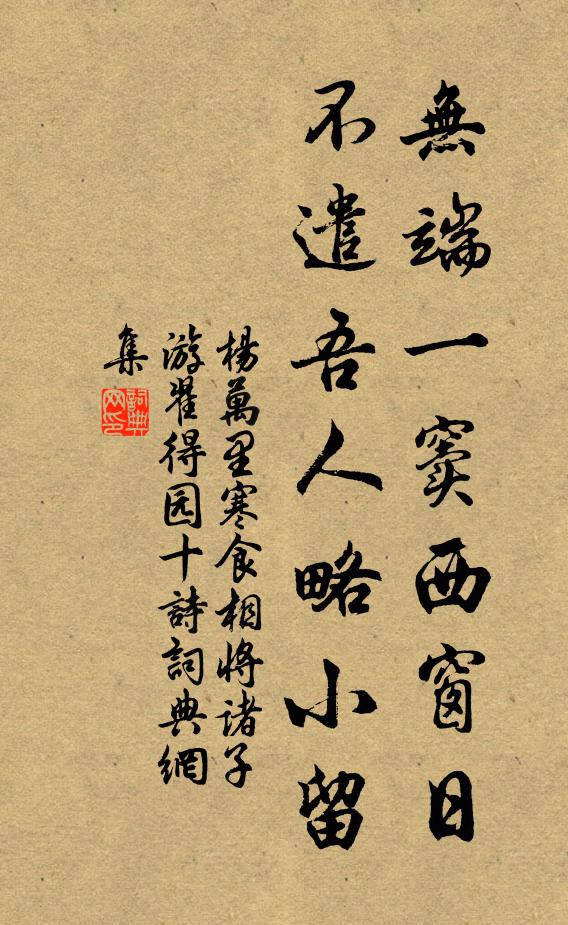 無端一竇西窗日
不遣吾人略小留
楊萬里寒食相將诸子
游翟得园十詩詞典網
集
詞典
网印